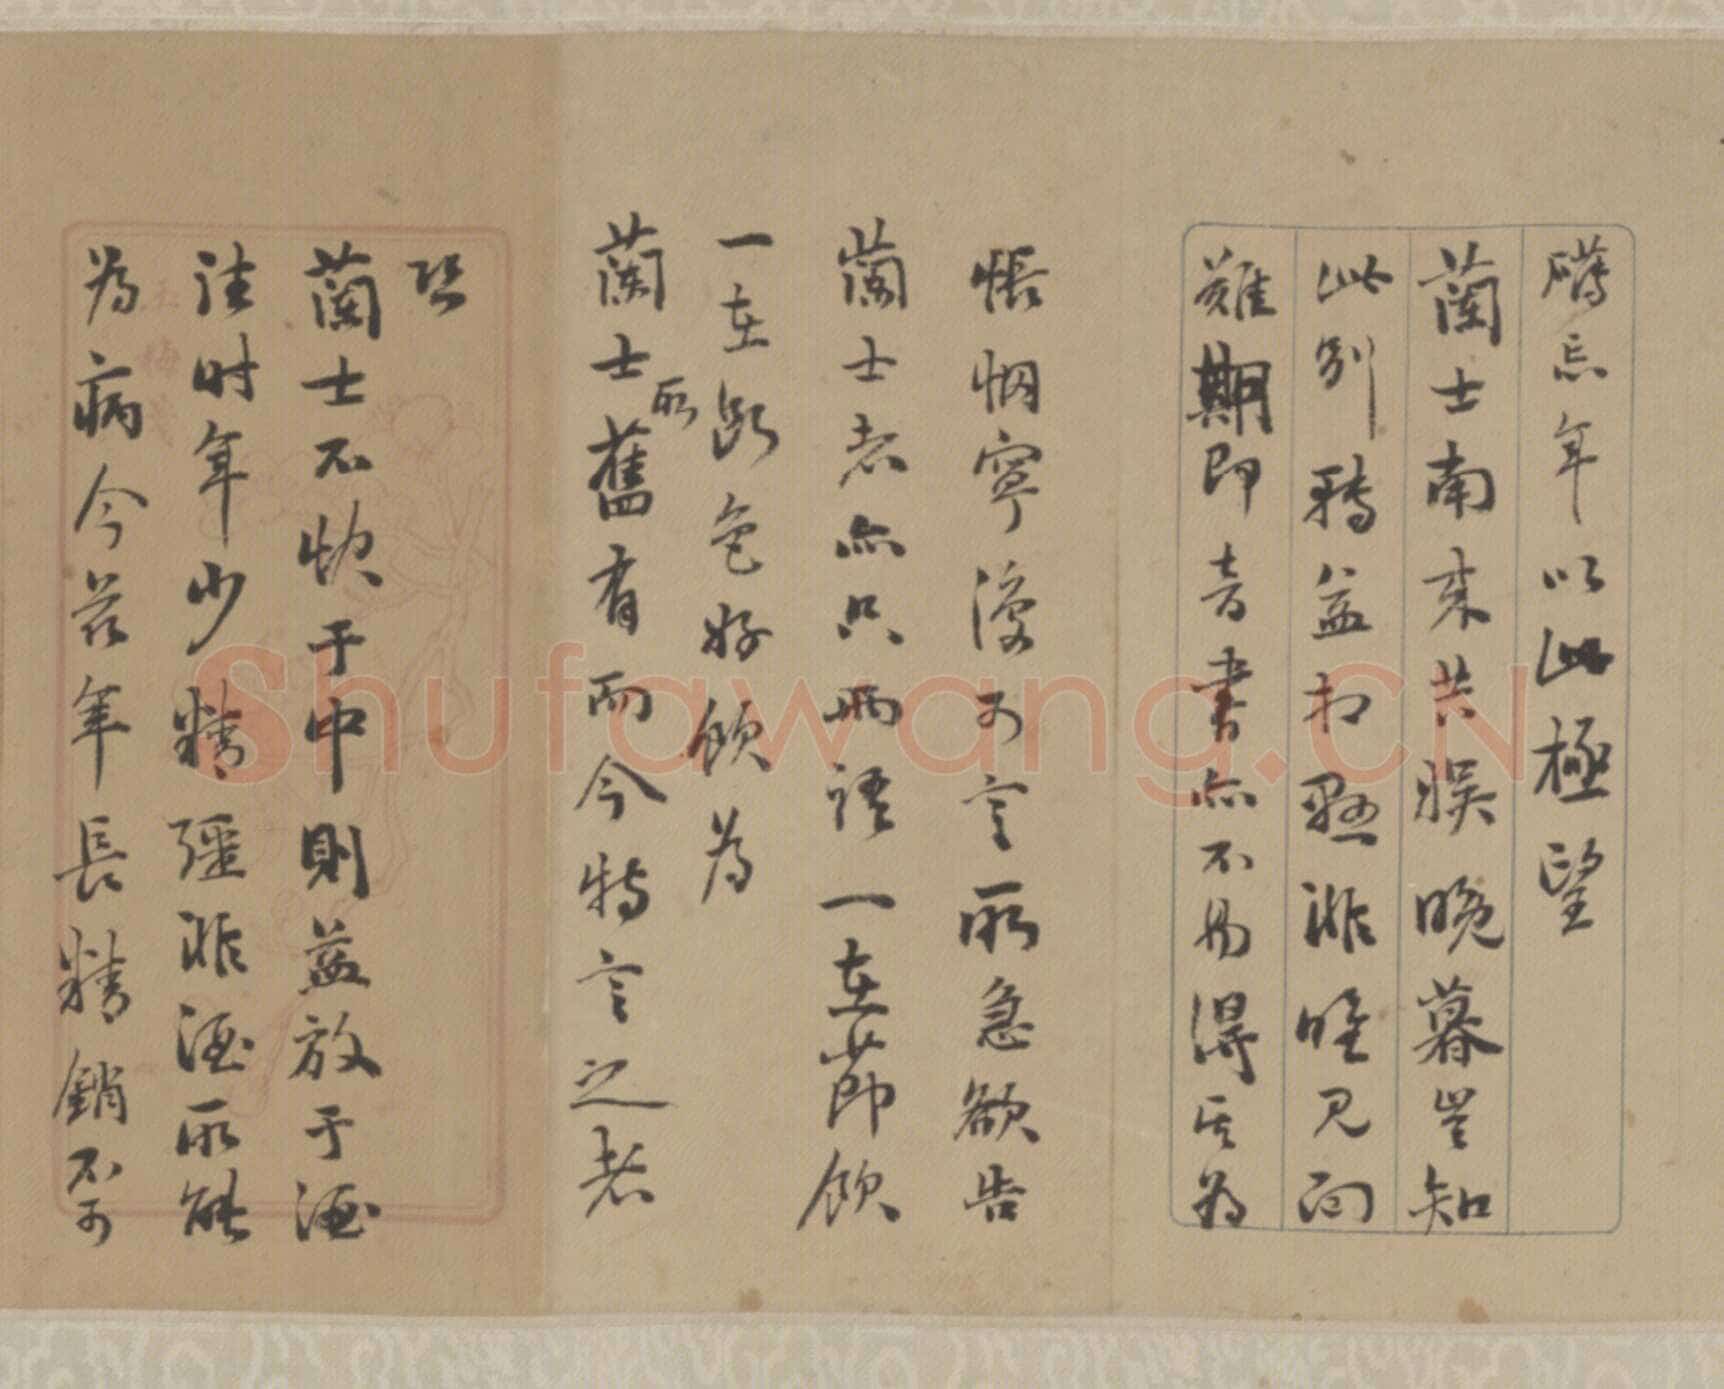 忘年以此極望
蘭士南來共 晚暮豈知
此別 益 非唯見面
難期即音書亦不易得其為
悵惘寧復可言所急欲告
蘭士者亦只兩語一在節飲
一在 色好飲為
蘭士所舊有而今特言之者
恐
蘭士不快于中則益放于酒
往時年少精彊非酒所能
為病今茲年長精銷不可
Shufawang.CN